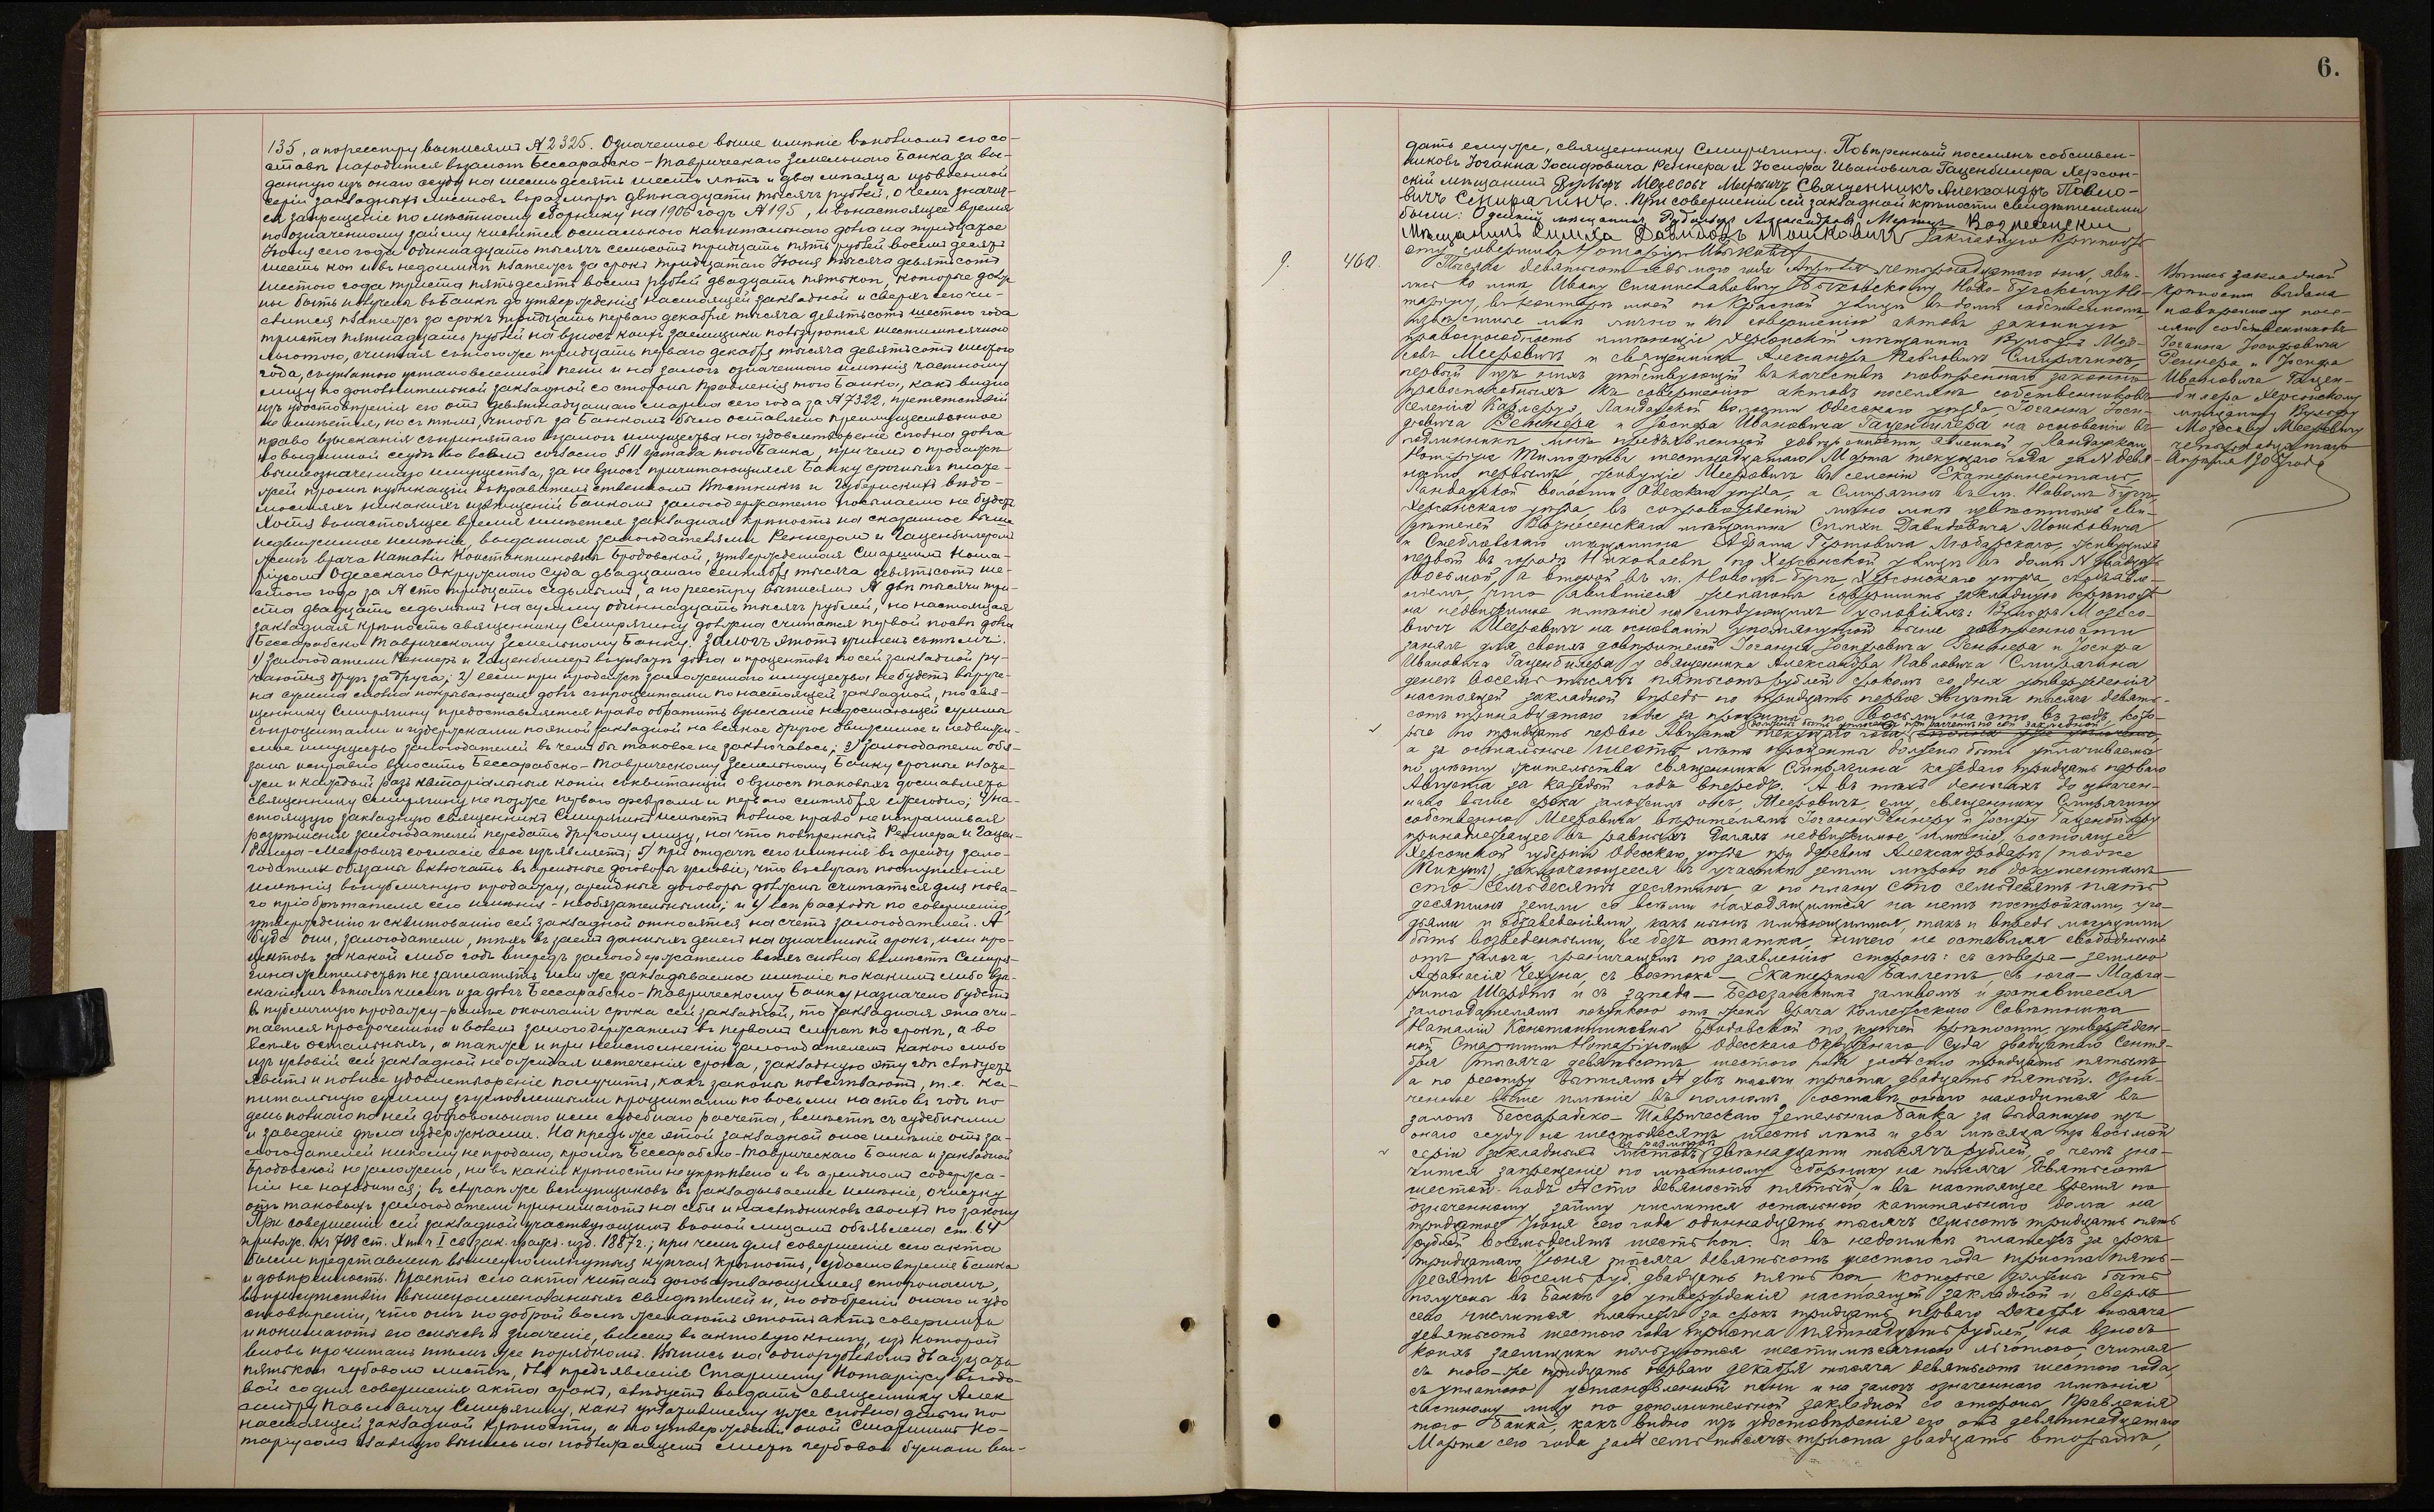 135, а по реестру выписямъ № 2325. Означенное выше имѣніе въ полномъ его со-
ставѣ находится въ залогѣ Бессарабско-Таврическаго Земельнаго Банка за вы-
данную изъ онаго ссуду на шестьдесятъ шесть лѣтъ и два мѣсяца изъ восьмой
серіи закладныхъ листовъ въ размѣрѣ двѣнадцати тысячъ рублей, о чемъ значит-
ся запрещеніе по мѣстному сборнику на 1906 годъ № 195, и въ настоящее время
по означенному займу числится остального капитальнаго долга на тридцатое
Іюня сего года одиннадцать тысячъ семьсотъ тридцать пять рублей восемьдесятъ
шесть коп и въ недоимкѣ платежъ за срокъ тридцатаго Іюня тысяча девятьсотъ
шестого года триста пятьдесятъ восемь рублей двадцать пять коп, которые долж
ны быть получены въ Банкѣ до утвержденія настоящей закладной и сверхъ сего чи-
слится платежъ за срокъ тридцать перваго декабря тысяча девятьсотъ шестого года
триста пятнадцать рублей на взносъ коихъ заемщики пользуются шестимѣсячною
льготою, считая съ того же тридцать перваго декабря тысяча девятьсотъ шестого
года, съ уплатою установленной пени и на залогъ означеннаго имѣнія частному
лицу по дополнительной закладной со стороны Правленія того Банка, какъ видно
изъ удостовѣренія его отъ девятнадцатаго марта сего года за № 7322, препятствій
не имѣется, но съ тѣмъ, чтобы за Банкомъ было оставлено преимущественное
право взысканія съ принятаго въ залогъ имущества на удовлетвореніе сполна долга
по выданной ссудѣ во всемъ согласно § 11 устава того Банка, при чемъ о продажѣ
вышеозначеннаго имущества, за не взносъ причитающихся Банку срочныхъ плате-
жей кромѣ публикаціи въ Правительственномъ Вѣстникѣ и Губернскихъ вѣдо-
мостяхъ никакихъ извѣщеній Банкомъ залогодержателю посылаемо не будетъ
Хотя въ настоящее время имѣется закладная крѣпость на сказанное выше
недвижимое имѣніе, выданная залогодателями Реннеромъ и Гаценбилеромъ
женѣ врача Наталіи Константиновнѣ Бродовской, утвержденная Старшимъ Нота-
ріусомъ Одесскаго Окружнаго Суда двадцатаго сентября тысяча девятьсотъ ше-
стого года за № сто тридцать седьмымъ, а по реестру выписямъ № двѣ тысячи три-
ста двадцать седьмымъ на сумму одиннадцать тысячъ рублей, но настоящая
закладная крѣпость священнику Смирягину должна считаться первой послѣ долга
Бессарабско-Таврическому Земельному Банку. Залогъ этотъ учиненъ съ тѣмъ:
1) залогодатели Реннеръ и Гаценбилеръ въ уплатѣ долга и процентовъ по сей закладной ру-
чаются другъ за друга; 2) если при продажѣ заложеннаго имущества не будетъ выруче-
на сумма сполна покрывающая долгъ съ процентами по настоящей закладной, то свя-
щеннику Смирягину предоставляется право обратить взысканіе недостающей суммы
съ процентами и издержками по этой закладной на всякое другое движимое и недвижи-
мое имущество залогодателей въ чемъ бы таковое не заключалось; 3) залогодатели обя-
заны исправно вносить Бессарабско-Таврическому Земельному Банку срочные плате-
жи и каждый разъ нотаріальныя копіи съ квитанцій о взносѣ таковыхъ доставлять
священнику Смирягину не позже перваго февраля и перваго сентября ежегодно; 4) на-
стоящую закладную священникъ Смирягинъ имѣетъ полное право не испрашивая
разрѣшенія залогодателей передать другому лицу, на что повѣренный Реннера и Гацен-
билера-Мееровичъ согласіе свое изъявляетъ; 5) при отдачѣ сего имѣнія въ аренду зало-
годатели обязаны включать въ арендные договоры условіе, что въ случаѣ поступленія
имѣнія въ публичную продажу, арендные договоры должны считаться для нова-
го пріобрѣтателя сего имѣнія - необязательными; и 6) всѣ расходы по совершенію,
утвержденію и сквитованію сей закладной относятся на счетъ залогодателей. А
буде они, залогодатели, тѣхъ въ заемъ данныхъ денегъ на означенный срокъ, или про-
центовъ за какой либо годъ впередъ залогодержателю всѣхъ сполна въ мѣстѣ Смиря-
гина жительства не заплатятъ или же закладываемое имѣніе по какимъ либо взы-
сканіямъ въ томъ числѣ и за долгъ Бессарабско-Таврическому Банку назначено будетъ
въ публичную продажу-раньше окончанія срока сей закладной, то закладная эта счи-
тается просроченною и воленъ залогодержатель въ первомъ случаѣ по срокѣ, а во
всѣхъ остальныхъ, а также и при неисполненіи залогодателемъ какого либо
изъ условій сей закладной не ожидая истеченія срока, закладную эту гдѣ слѣдуетъ
явить и полное удовлетвореніе получить, какъ законы повелѣваютъ, т.е. ка-
питальную сумму съ условленными процентами по восьми на сто въ годъ по
день полнаго по ней добровольнаго или судебнаго расчета, вмѣстѣ съ судебными
и заведеніе дѣла издержками. На предь же этой закладной оное имѣніе отъ за-
логодателей никому не продано, кромѣ Бессарабско-Таврическаго Банка и закладной
Бродовской не заложено, ни въ какія крѣпости не укрѣплено и въ арендномъ содержа-
ніи не находится; въ случаѣ же вступщиковъ въ закладываемое имѣніе, очистку
отъ таковыхъ залогодатели принимаютъ на себя и наслѣдниковъ своихъ по закону
При совершеніи сей закладной участвующимъ въ оной лицамъ объявлена ст. 64
прилож. къ 708 ст. Х т. ч I св. зак. гражд. изд. 1887 г.; при чемъ для совершенія сего акта
были представлены вышеупомянутыя купчая крѣпость, удостовѣреніе Банка
и довѣренность. Проектъ сего акта читанъ договаривающимися сторонамъ,
въ присутствіи вышепоименованныхъ свидѣтелей и, по одобреніи онаго и удо
стовѣреніи, что онѣ по доброй волѣ желаютъ этотъ актъ совершить
и понимаютъ его смыслъ и значеніе, внесенъ въ актовую книгу, изъ которой
вновь прочитанъ тѣмъ же порядкомъ. Выпись на однорублевомъ двадцати
пяти коп гербовомъ листѣ, для предъявленія Старшему Нотаріусу въ годо-
вой со дня совершенія акта срокъ, слѣдуетъ выдать священнику Алек
сандру Павловичу Смирягину, какъ уплатившему уже сполна деньги по
настоящей закладной крѣпости, а по утвержденіи оной Старшимъ Но-
таріусомъ главную выпись на подлежащемъ листѣ гербовой бумаги вы-
6.
дать ему же, священнику Смирягину. Повѣренный поселянъ собствен-
никовъ Іоганна Іосифовича Реннера и Іосифа Ивановича Гаценбилера Херсон-
скій мѣщанинъ Вульфъ Мозесовъ Меровичъ Священникъ Александръ Павло-
вичъ Смирягинъ. При совершеніи сей закладной крѣпости свидѣтелями
были: Одесскій мѣщанинъ Рудольфъ Александровъ Вознесенскій
Мѣщанинъ Симха Давидовъ Мошковичъ Закладную крѣпость
эту совершилъ Нотаріусъ Быковскій
9.
460.
Тысяча девятьсотъ седьмого года Апрѣля четырнадцатаго дня, яви-
лись ко мнѣ, Ивану Станиславовичу Быковскому, Ново-Бугскому Но-
таріусу, въ контору мою по Красной улицѣ въ домѣ собственномъ
извѣстные мнѣ лично и къ совершенію актовъ законную
правоспособность имѣющіе Херсонскій мѣщанинъ Вульфъ Мозе-
совъ Мееровичъ и священникъ Александръ Павловичъ Смирягинъ,
первый изъ нихъ дѣйствующій въ качествѣ повѣреннаго законно
правоспособныхъ къ совершенію актовъ поселянъ собственниковъ
селенія Карлсруэ, Ландауской волости Одесскаго уѣзда, Іоганна Іоси-
фовича Реннера и Іосифа Ивановича Гаценбилера на основаніи въ
подлинникѣ мнѣ предъявленной довѣренности, явленной у Ландаускаго
Нотаріуса Тимофѣева шестнадцатаго Марта текущаго года за № девя-
носто первымъ, живущіе Мееровичъ въ селеніи Екатериненталь,
Ландауской волости Одесскаго уѣзда, а Смирягинъ въ м. Новомъ Бугѣ,
Херсонскаго уѣзда, въ сопровожденіи лично мнѣ извѣстныхъ сви-
дѣтелей Вознесенскаго мѣщанина Симхи Давидовича Мошковича
и Стеблевскаго мѣщанина Абрама Гершовича Любарскаго, живущихъ
первый въ городѣ Николаевѣ по Херсонской улицѣ въ домѣ № двадцать
восьмой, а второй въ м. Новомъ-Бугѣ, Херсонскаго уѣзда, съ объявле-
ніемъ, что явившіеся желаютъ совершить закладную крѣпость
на недвижимое имѣніе на слѣдующихъ условіяхъ: Вульфъ Мозесо-
вичъ Мееровичъ на основаніи упомянутой выше довѣренности
занялъ для своихъ довѣрителей Іоганна Іосифовича Реннера и Іосифа
Ивановича Гаценбилера у священника Александра Павловича Смирягина
денегъ восемь тысячъ пятьсотъ рублей срокомъ со дня утвержденія
настоящей закладной впредь по тридцать первое Августа тысяча девять-
сотъ тринадцатаго года за проценты по восьми на сто въ годъ, кото-
должны быть уплочены при расчетѣ по сей закладной
рые по тридцать первое Августа текущаго года
а за остальные шесть лѣтъ проценты должно быть уплачиваемы
по мѣсту жительства священника Смирягина каждаго тридцать перваго
Августа за каждый годъ впередъ. А въ тѣхъ деньгахъ до означен-
наго выше срока заложилъ онъ, Мееровичъ, ему, священнику Смирягину
собственно Мееровича вѣрителямъ Іоганну Реннеру и Іосифу Гаценбилеру
принадлежащее въ равныхъ доляхъ недвижимое имѣніе, состоящее
Херсонской губерніи Одесскаго уѣзда при деревнѣ Александродаръ (тоже
), заключающееся въ участкѣ земли мѣрою по документамъ
сто семьдесятъ десятинъ а по плану сто семьдесятъ пять
десятинъ земли со всѣми находящимися на немъ постройками, уго-
дьями и обзаведеніями, какъ нынѣ имѣющимися, такъ и впредь могущими
быть возведенными, все безъ остатка, ничего не оставляя свободнымъ
отъ залога, граничащимъ по заявленію сторонъ: съ сѣвера - землею
Афанасія Чехуна, съ востока - Екатерины Баллетъ, съ юга - Марга-
риты Шардтъ и съ запада - Березанскимъ заливомъ и доставшееся
залогодателямъ покупкою отъ жены врача Коллежскаго Совѣтника
Наталіи Константиновны Бродовской по купчей крѣпости, утвержден-
ной Старшимъ Нотаріусомъ Одесскаго Окружнаго Суда двадцатаго Сентя-
бря тысяча девятьсотъ шестого года за № сто тридцать пятымъ
а по реестру выписямъ № двѣ тысячи триста двадцать пятый. Озна-
ченное выше имѣніе въ полномъ составѣ онаго находится въ
залогѣ Бессарабско-Таврическаго Земельнаго Банка за выданную изъ
онаго ссуду на шестьдесятъ шесть лѣтъ и два мѣсяца изъ восьмой
въ размѣрѣ
серіи закладныхъ листовъ двѣнадцати тысячъ рублей, о чемъ зна-
чится запрещеніе по мѣстному сборнику на тысяча девятьсотъ
шестой годъ № сто девяносто пятый, и въ настоящее время по
означенному займу числится остального капитальнаго долга на
тридцатое Іюня сего года одиннадцать тысячъ семьсотъ тридцать пять
рублей восемьдесятъ шесть коп. и въ недоимкѣ платежъ за срокъ
тридцатаго Іюня тысяча девятьсотъ шестого года триста пять-
десятъ восемь руб. двадцать пять коп. которые должны быть
получены въ Банкѣ до утвержденія настоящей закладной и сверхъ
сего числится платежъ за срокъ тридцать перваго Декабря тысяча
девятьсотъ шестого года триста пятнадцать рублей, на взносъ
коихъ заемщики пользуются шестимѣсячною льготою, считая
съ того-же тридцать перваго декабря тысяча девятьсотъ шестого года,
съ уплатою установленной пени и на залогъ означеннаго имѣнія
частному лицу по дополнительной закладной со стороны Правленія
того Банка, какъ видно изъ удостовѣренія его отъ девятнадцатаго
Марта сего года за № семь тысячъ триста двадцать вторымъ,
Выпись закладной
крѣпости выдана
повѣренному посе-
лянъ собственниковъ
Іоганна Іосифовича
Реннера и Іосифа
Ивановича Гацен-
билера Херсонскому
мѣщанину Вульфу
Мозесову Мееровичу
четырнадцатаго
Апрѣля 1907 года